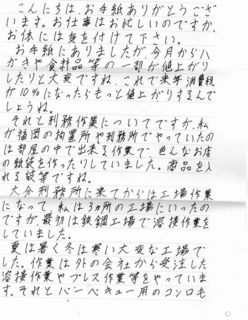 こんにちは、お手紙ありがとうござ
います。お仕事はお忙しいのですか、
お体には気を付けて下さい。
お手紙にありましたが今月からハ
ガキや食料品等の一部が値上がり
したりと大変ですね、これで来年消費税
が10%になったらもっと値上がりするんで
しょうね。
それと刑務作業についてですが、私
が福岡の拘置所や刑務所でやっていたの
は部屋の中で出来る作業で、色んなお店
の紙袋を作ったりしていました。商品を入
れる袋等ですね。
大分刑務所に来てからは工場作業
になって、私は3ヶ所の工場にいったの
ですが、最初は鉄鋼工場で溶接作業を
していました。
夏は暑く冬は寒い大変な工場で
した。作業は外の会社から受注した
溶接作業やプレス作業等をやっていま
す。それとバーベキュー用のコンロも